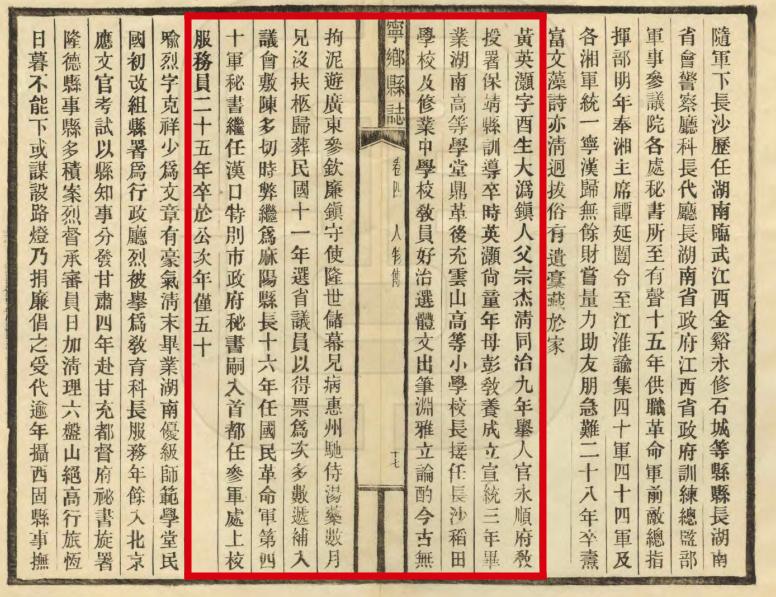 隨軍下長沙歷任湖南臨武江西金谿永修石城等縣縣長湖南
省會警察廳科長代廳長湖南省政府江西省政府訓練總監部
軍事參議院各處秘書所至有聲十五年供職革命軍前敵總指
揮部明年奉湘主席譚延闓令至江淮諭集四十軍四十四軍及
各湘軍統一寧漢歸無餘財嘗量力助友朋急難二十八年卒燾
富文藻詩亦清迥拔俗有遺稾藏於家
黃英灝字酉生大溈鎮人父宗杰清同治九年舉人官永順府敎
授署保靖縣訓導卒時英灝尙童年母彭敎養成立宣統三年畢
業湖南高等學堂鼎革後充雲山高等小學校長接任長沙稻田
學校及修業中學校敎員好治選體文出筆淵雅立論酌今古無
寧鄉縣誌
卷四 人物傳
十七
拘泥遊廣東參欽廉鎮守使隆世儲幕兄病惠州馳侍湯藥數月
兄沒扶柩歸葬民國十一年選省議員以得票爲次多數遞補入
議會敷陳多切時弊繼爲麻陽縣長十六年任國民革命軍第四
十軍秘書繼任漢口特別市政府秘書嗣入首都任參軍處上校
服務員二十五年卒於公次年僅五十
喩烈字克祥少爲文章有豪氣清末畢業湖南優級師範學堂民
國初改組縣署爲行政廳烈被舉爲敎育科長服務年餘入北京
應文官考試以縣知事分發甘肅四年赴甘充都督府祕書旋署
隆德縣事縣多積案烈督承審員日加清理六盤山絕高行旅恆
日暮不能下或謀設路燈乃捐廉倡之受代逾年攝西固縣事撫